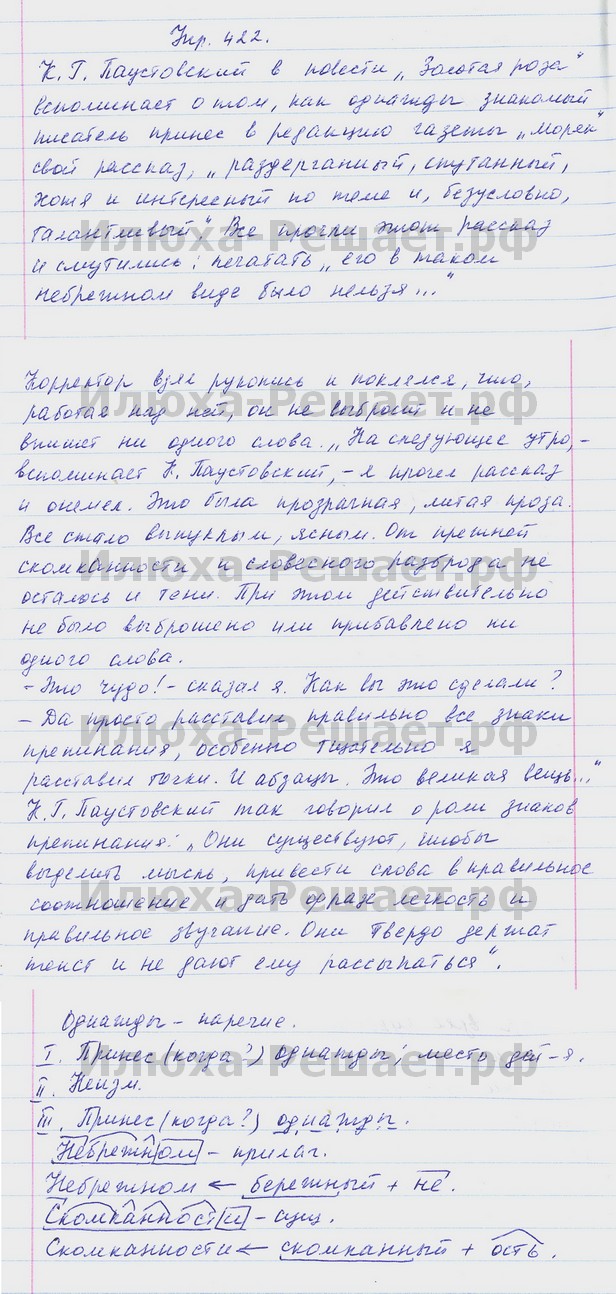 Упр. 422.
К. Г. Паустовский в повести „Золотая роза“
вспоминает о том, как однажды знакомый
писатель принес в редакцию газеты „Моряк“
свой рассказ, „раздерганный, спутанный,
хотя и интересный по теме и, безусловно,
талантливый“. Все прочли этот рассказ
и смутились: печатать „его в таком
небрежном виде было нельзя...“
Корректор взял рукопись и поклялся, что,
работая над ней, он не выбросит и не
впишет ни одного слова. „На следующее утро, –
вспоминает К. Паустовский, – я прочел рассказ
и онемел. Это была прозрачная, литая проза.
Все стало выпуклым, ясным. От прежней
скомканности и словесного разброда не
осталось и тени. При этом действительно
не было выброшено или прибавлено ни
одного слова.
– Это чудо! – сказал я. Как вы это сделали?
– Да просто расставил правильно все знаки
препинания, особенно тщательно я
расставил точки. И абзацы. Это великая вещь...“
К. Г. Паустовский так говорил о роли знаков
препинания: „Они существуют, чтобы
выделить мысль, привести слова в правильное
соотношение и дать фразе легкость и
правильное звучание. Они твердо держат
текст и не дают ему рассыпаться“.
Однажды – наречие.
I. Принес (когда?) однажды; место дей-я.
II. Неизм.
III. Принес (когда?) однажды.
Небрежном – прилаг.
Небрежном ← бережный + не.
Скомканности – сущ.
Скомканности ← скомканный + ость.
Илюха-Решает.рф
Илюха-Решает.рф
Илюха-Решает.рф
Илюха-Решает.рф
Илюха-Решает.рф